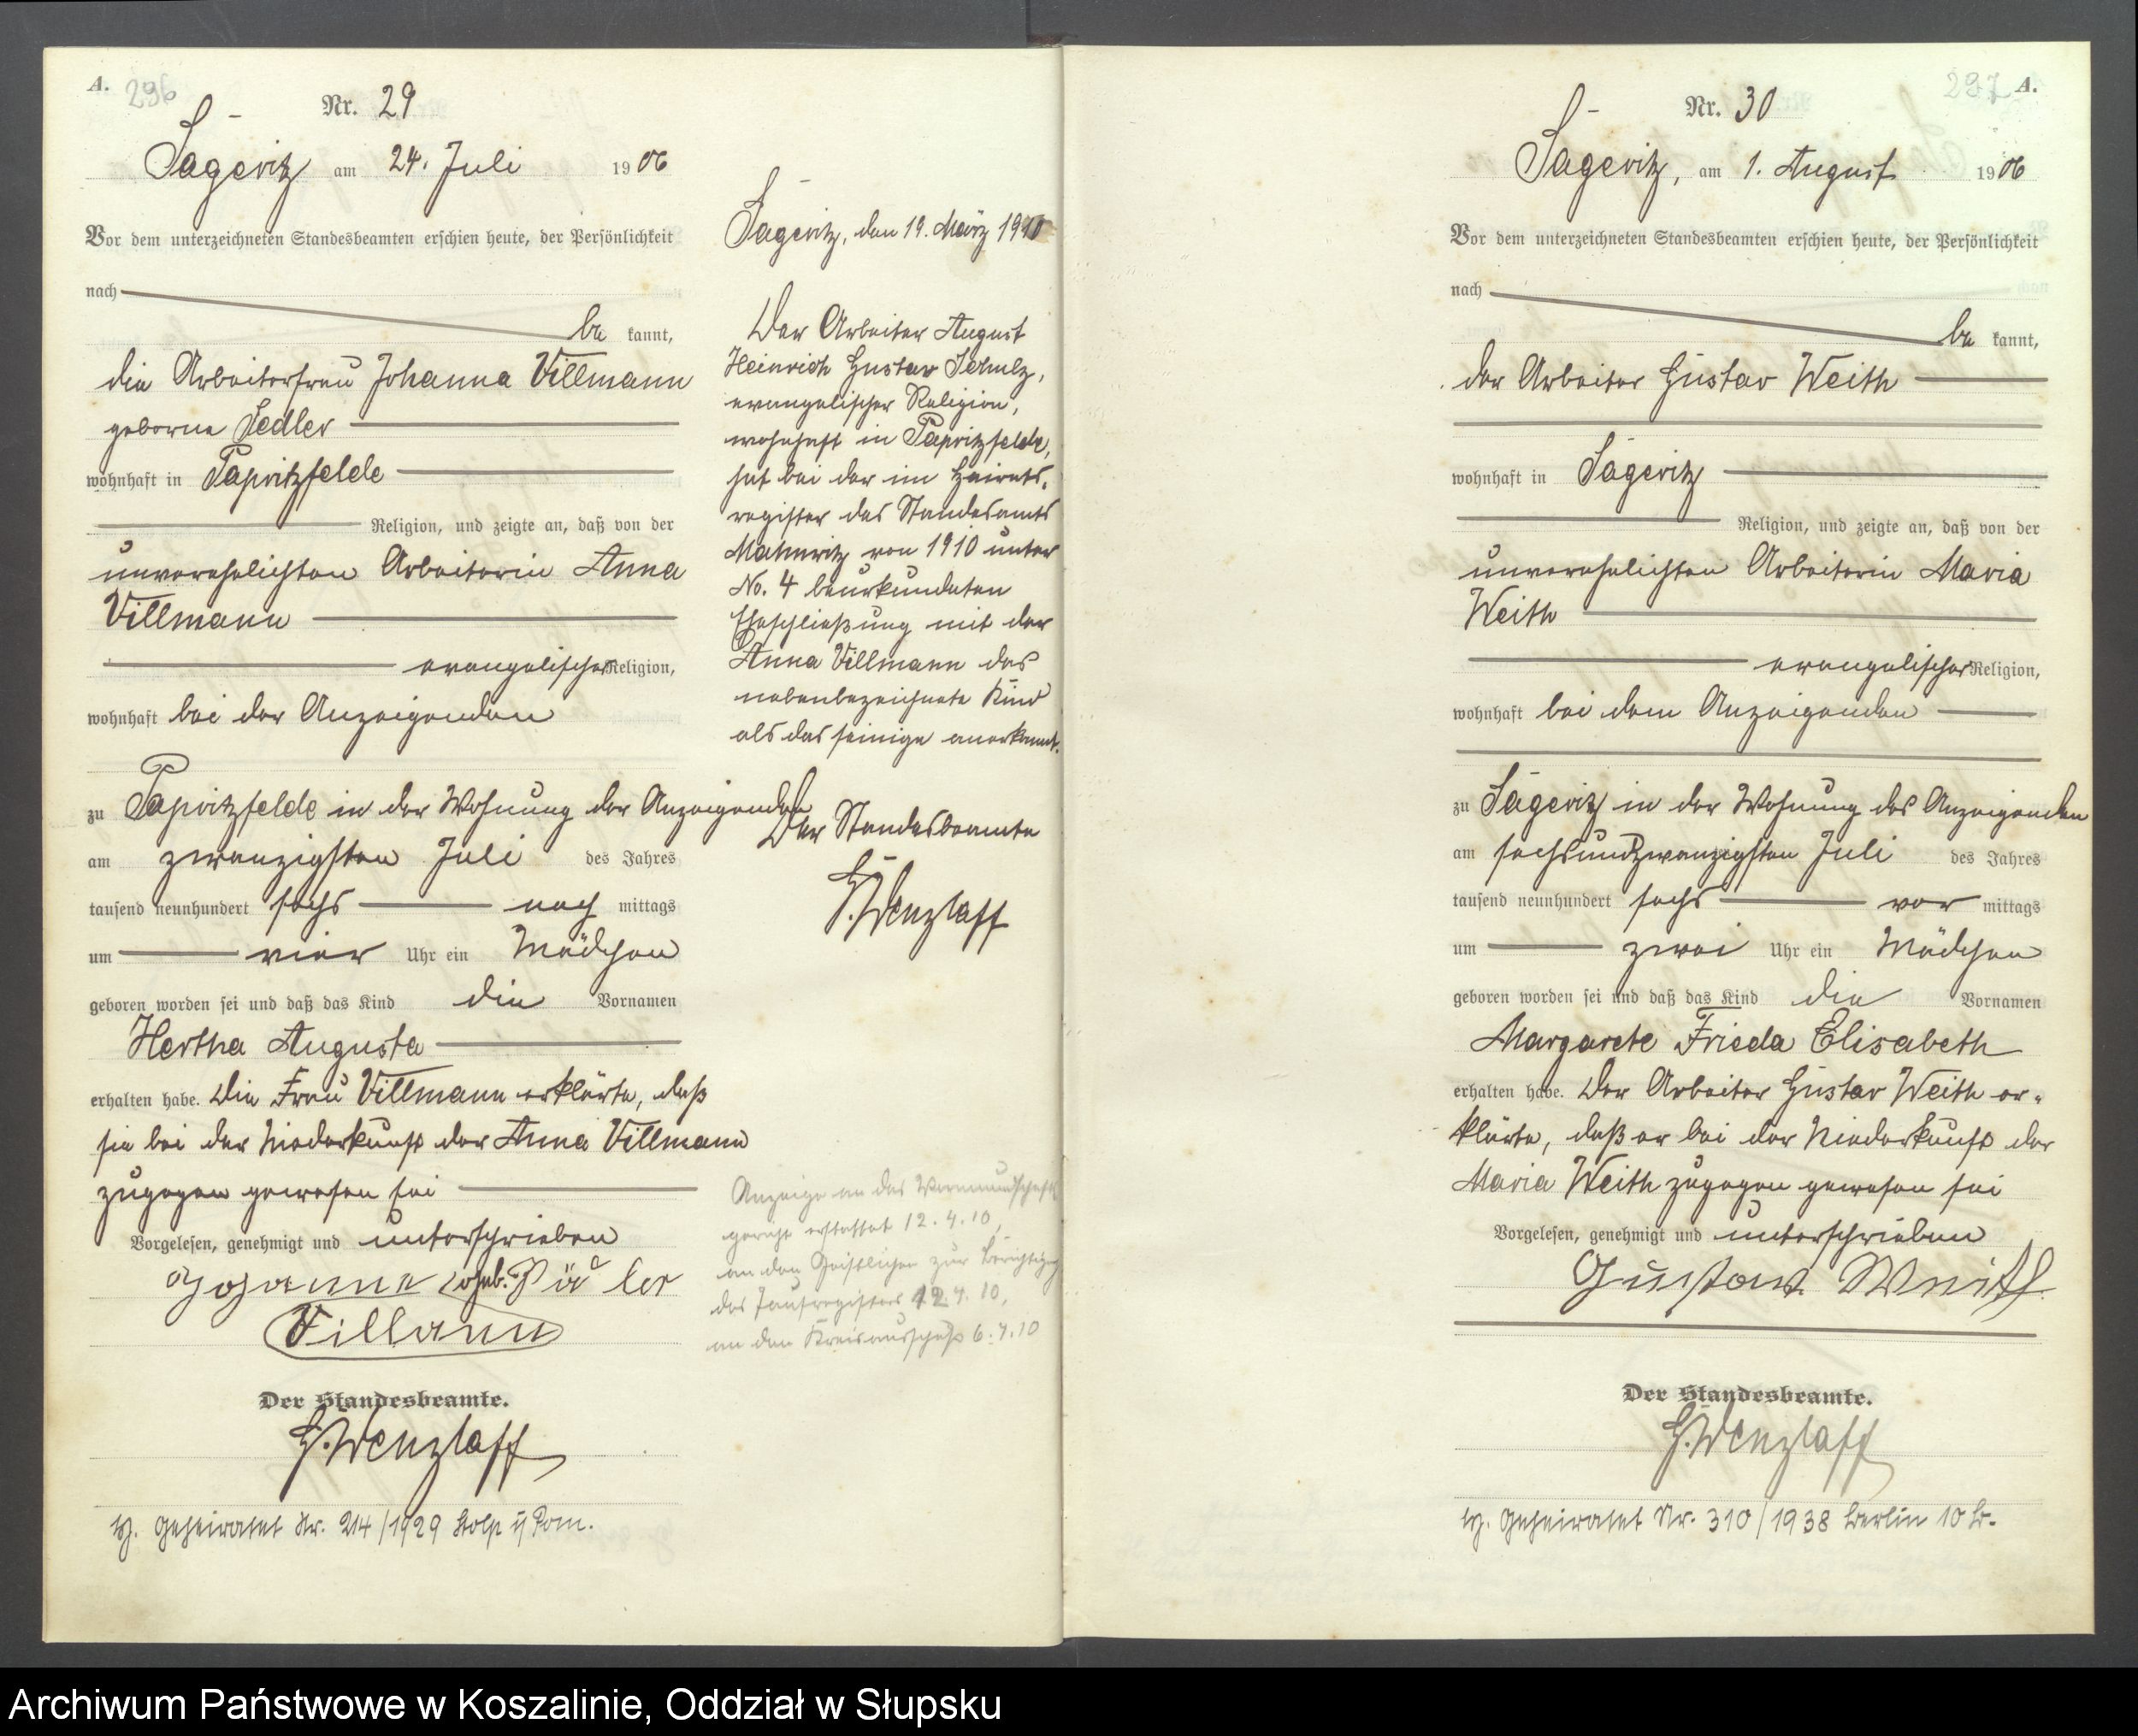 A.
296
Nr. 29
Sageritz am 24. Juli 1906
Vor dem unterzeichneten Standesbeamten erschien heute, der Persönlichkeit
nach
be kannt,
die Arbeiterfrau Johanna Villmann
geborne Sedler
wohnhaft in Papritzfelde
Religion, und zeigte an, daß von der
unverehelichten Arbeiterin Anna
Villmann
evangelischer Religion,
wohnhaft bei der Anzeigenden
zu Papritzfelde in der Wohnung der Anzeigenden
am zwanzigsten Juli des Jahres
tausend neunhundert sechs nach mittags
um vier Uhr ein Mädchen
geboren worden sei und daß das Kind die Vornamen
Hertha Augusta
erhalten habe. Die Frau Villmann erklärte, daß
sie bei der Niederkunft der Anna Villmann
zugegen gewesen sei
Vorgelesen, genehmigt und unterschrieben
geb.
Villann
Der Standesbeamte.
G. Wenzlaff
Geheiratet Nr. 214/1929 Stolp i/Pom.
Sageritz, den 19. März 1910
Der Arbeiter August
Heinrich Gustav Schulz,
evangelischer Religion,
wohnhaft in Papritzfelde,
hat bei der im Heirats-
register des Standesamts
von 1910 unter
No. 4 beurkundeten
Eheschließung mit der
Anna Villmann das
nebenbezeichnete Kind
als das seinige anerkannt.
Der Standesbeamte
G. Wenzlaff
Anzeige an das Vormundschafts
gericht erstattet 12.4.10,
an den Geistlichen zur Berichtigung
des Taufregisters 12.4.10,
an den Kreisausschuß 6.4.10
297 A.
Nr. 30
Sageritz, am 1. August 1906
Vor dem unterzeichneten Standesbeamten erschien heute, der Persönlichkeit
nach
be kannt,
der Arbeiter Gustav Weith
wohnhaft in Sageritz
Religion, und zeigte an, daß von der
unverehelichten Arbeiterin Maria
Weith
evangelischer Religion,
wohnhaft bei dem Anzeigenden
zu Sageritz in der Wohnung des Anzeigenden
am sechsundzwanzigsten Juli des Jahres
tausend neunhundert sechs vor mittags
um zwei Uhr ein Mädchen
geboren worden sei und daß das Kind die Vornamen
Margarete Frieda Elisabeth
erhalten habe. Der Arbeiter Gustav Weith er-
klärte, daß er bei der Niederkunft der
Maria Weith zugegen gewesen sei
Vorgelesen, genehmigt und unterschrieben
Gustav Weith
Der Standesbeamte.
G. Wenzlaff
Geheiratet Nr. 310/1938 Berlin 10 b.
Archiwum Państwowe w Koszalinie, Oddział w Słupsku